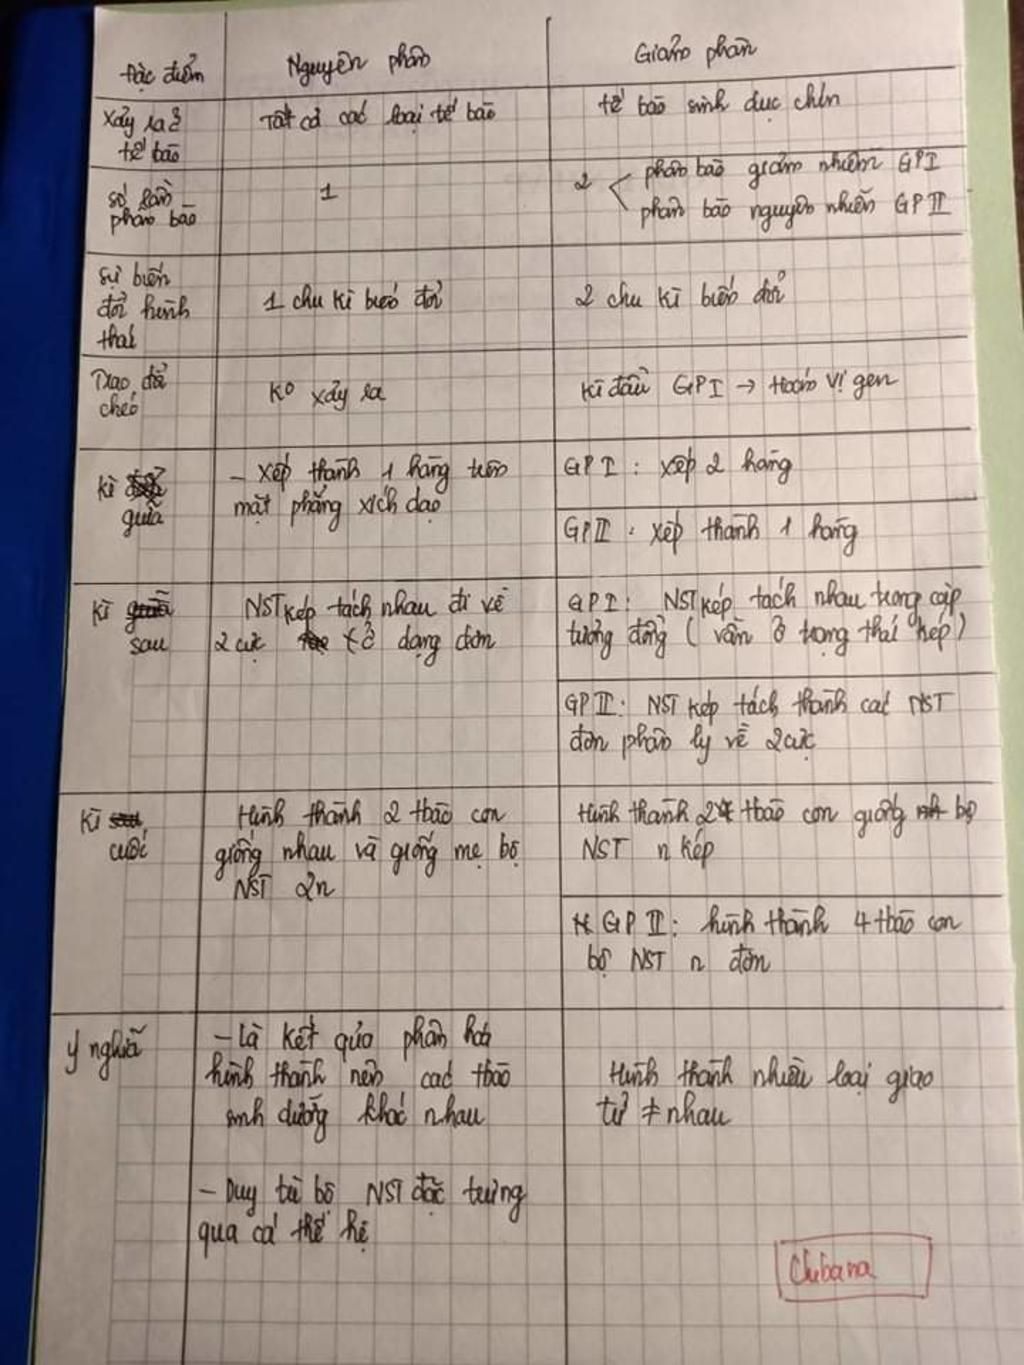 Đặc điểm
Nguyên phân
Giảm phân
Xảy ra ở
tế bào
Tất cả các loại tế bào
tế bào sinh dục chín
số lần
phân bào
1
2
phân bào giảm nhiễm GPI
phân bào nguyên nhiễm GPII
sự biến
đổi hình
thái
1 chu kì biến đổi
2 chu kì biến đổi
Trao đổi
chéo
Ko xảy ra
Kì đầu GPI → Hoán vị gen
kì
giữa
- Xếp thành 1 hàng trên
mặt phẳng xích đạo
GPI : xếp 2 hàng
GPII : xếp thành 1 hàng
kì
sau
NST kép tách nhau đi về
2 cực ở dạng đơn
GPI : NST kép tách nhau trong cặp
tương đồng ( vẫn ở trạng thái kép )
GPII : NST kép tách thành các NST
đơn phân ly về 2 cực
kì
cuối
Hình thành 2 tbào con
giống nhau và giống mẹ bộ
NST 2n
Hình thành 2 tbào con giống bộ
NST n kép
GPII : hình thành 4 tbào con
bộ NST n đơn
ý nghĩa
- Là kết quả phân hoá
hình thành nên các tbào
sinh dưỡng khác nhau
- Duy trì bộ NST đặc trưng
qua các thế hệ
Hình thành nhiều loại giao
tử ≠ nhau
Chibana